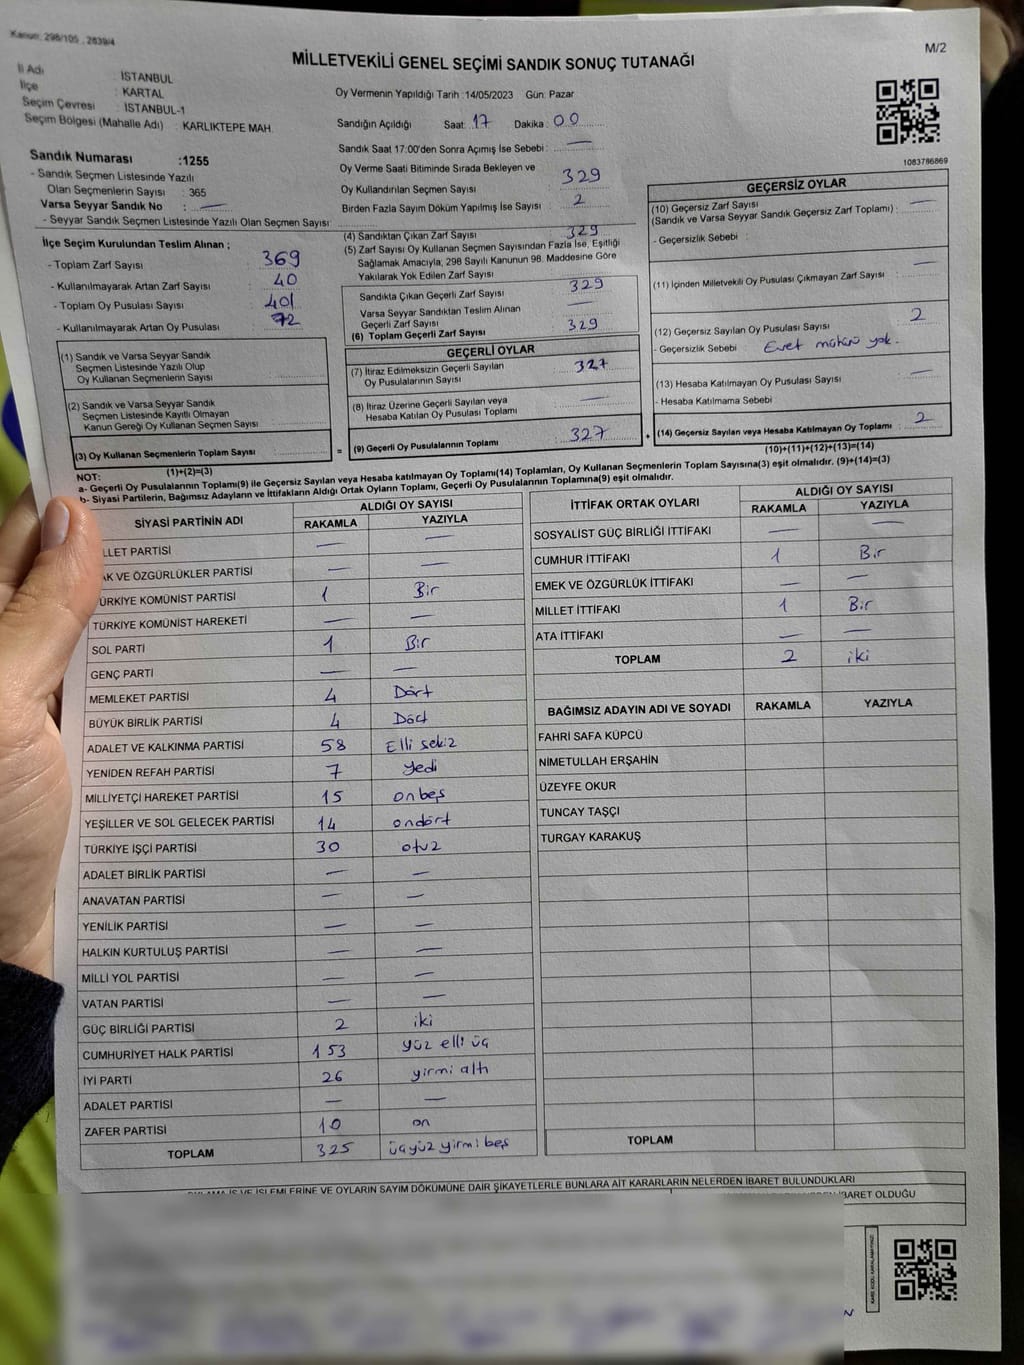 Kanun: 298/105 , 2839/4
M/2
MİLLETVEKİLİ GENEL SEÇİMİ SANDIK SONUÇ TUTANAĞI
İl Adı : İSTANBUL
İlçe : KARTAL
Seçim Çevresi : İSTANBUL-1
Seçim Bölgesi (Mahalle Adı) : KARLIKTEPE MAH.
Sandık Numarası :1255
- Sandık Seçmen Listesinde Yazılı
Olan Seçmenlerin Sayısı : 365
Varsa Seyyar Sandık No : —
- Seyyar Sandık Seçmen Listesinde Yazılı Olan Seçmen Sayısı:
Oy Vermenin Yapıldığı Tarih :14/05/2023 Gün: Pazar
Sandığın Açıldığı Saat: 17 Dakika: 00
Sandık Saat 17:00'den Sonra Açımış İse Sebebi: —
Oy Verme Saati Bitiminde Sırada Bekleyen ve
Oy Kullandırılan Seçmen Sayısı 329
Birden Fazla Sayım Döküm Yapılmış İse Sayısı 2
1083786869
İlçe Seçim Kurulundan Teslim Alınan ;
- Toplam Zarf Sayısı 369
- Kullanılmayarak Artan Zarf Sayısı 40
- Toplam Oy Pusulası Sayısı 401
- Kullanılmayarak Artan Oy Pusulası 72
(1) Sandık ve Varsa Seyyar Sandık
Seçmen Listesinde Yazılı Olup
Oy Kullanan Seçmenlerin Sayısı
(2) Sandık ve Varsa Seyyar Sandık
Seçmen Listesinde Kayıtlı Olmayan
Kanun Gereği Oy Kullanan Seçmen Sayısı
(3) Oy Kullanan Seçmenlerin Toplam Sayısı
(1)+(2)=(3)
(4) Sandıktan Çıkan Zarf Sayısı 329
(5) Zarf Sayısı Oy Kullanan Seçmen Sayısından Fazla İse, Eşitliği
Sağlamak Amacıyla, 298 Sayılı Kanunun 98. Maddesine Göre
Yakılarak Yok Edilen Zarf Sayısı
Sandıkta Çıkan Geçerli Zarf Sayısı 329
Varsa Seyyar Sandıktan Teslim Alınan
Geçerli Zarf Sayısı —
(6) Toplam Geçerli Zarf Sayısı 329
GEÇERLİ OYLAR
(7) İtiraz Edilmeksizin Geçerli Sayılan
Oy Pusulalarının Sayısı 327
(8) İtiraz Üzerine Geçerli Sayılan veya
Hesaba Katılan Oy Pusulası Toplamı —
= (9) Geçerli Oy Pusulalarının Toplamı 327 +
GEÇERSİZ OYLAR
(10) Geçersiz Zarf Sayısı —
(Sandık ve Varsa Seyyar Sandık Geçersiz Zarf Toplamı) :
- Geçersizlik Sebebi :
(11) İçinden Milletvekili Oy Pusulası Çıkmayan Zarf Sayısı —
(12) Geçersiz Sayılan Oy Pusulası Sayısı 2
- Geçersizlik Sebebi : Evet mührü yok.
(13) Hesaba Katılmayan Oy Pusulası Sayısı —
- Hesaba Katılmama Sebebi
(14) Geçersiz Sayılan veya Hesaba Katılmayan Oy Toplamı : 2
(10)+(11)+(12)+(13)=(14)
NOT:
a- Geçerli Oy Pusulalarının Toplamı(9) ile Geçersiz Sayılan veya Hesaba katılmayan Oy Toplamı(14) Toplamları, Oy Kullanan Seçmenlerin Toplam Sayısına(3) eşit olmalıdır. (9)+(14)=(3)
b- Siyasi Partilerin, Bağımsız Adayların ve İttifakların Aldığı Ortak Oyların Toplamı, Geçerli Oy Pusulalarının Toplamına(9) eşit olmalıdır.
SİYASİ PARTİNİN ADI ALDIĞI OY SAYISI
RAKAMLA YAZIYLA
LLET PARTİSİ — —
AK VE ÖZGÜRLÜKLER PARTİSİ — —
TÜRKİYE KOMÜNİST PARTİSİ 1 Bir
TÜRKİYE KOMÜNİST HAREKETİ — —
SOL PARTİ 1 Bir
GENÇ PARTİ — —
MEMLEKET PARTİSİ 4 Dört
BÜYÜK BİRLİK PARTİSİ 4 Dört
ADALET VE KALKINMA PARTİSİ 58 Elli sekiz
YENİDEN REFAH PARTİSİ 7 yedi
MİLLİYETÇİ HAREKET PARTİSİ 15 onbeş
YEŞİLLER VE SOL GELECEK PARTİSİ 14 ondört
TÜRKİYE İŞÇİ PARTİSİ 30 otuz
ADALET BİRLİK PARTİSİ — —
ANAVATAN PARTİSİ — —
YENİLİK PARTİSİ — —
HALKIN KURTULUŞ PARTİSİ — —
MİLLİ YOL PARTİSİ — —
VATAN PARTİSİ — —
GÜÇ BİRLİĞİ PARTİSİ 2 iki
CUMHURİYET HALK PARTİSİ 153 yüz elli üç
İYİ PARTİ 26 yirmi altı
ADALET PARTİSİ — —
ZAFER PARTİSİ 10 on
TOPLAM 325 üçyüz yirmi beş
İTTİFAK ORTAK OYLARI ALDIĞI OY SAYISI
RAKAMLA YAZIYLA
SOSYALİST GÜÇ BİRLİĞİ İTTİFAKI — —
CUMHUR İTTİFAKI 1 Bir
EMEK VE ÖZGÜRLÜK İTTİFAKI — —
MİLLET İTTİFAKI 1 Bir
ATA İTTİFAKI — —
TOPLAM 2 iki
BAĞIMSIZ ADAYIN ADI VE SOYADI RAKAMLA YAZIYLA
FAHRİ SAFA KÜPCÜ
NİMETULLAH ERŞAHİN
ÜZEYFE OKUR
TUNCAY TAŞÇI
TURGAY KARAKUŞ
TOPLAM
İŞ VE İŞLEMLERİNE VE OYLARIN SAYIM DÖKÜMÜNE DAİR ŞİKAYETLERLE BUNLARA AİT KARARLARIN NELERDEN İBARET BULUNDUKLARI
İBARET OLDUĞU